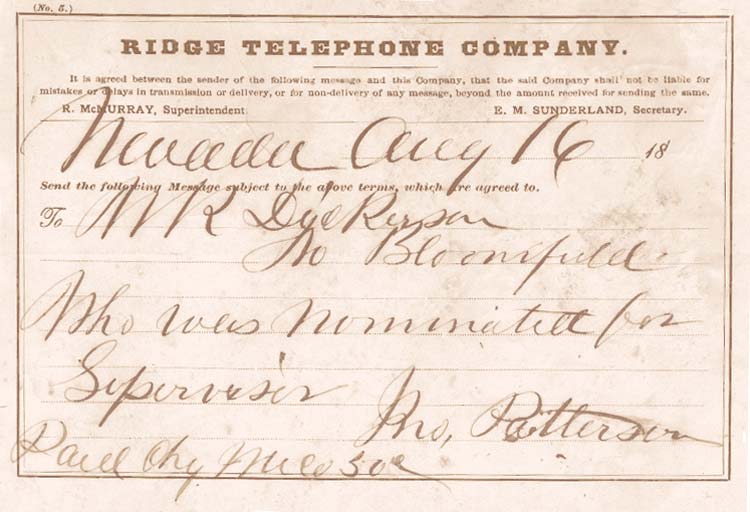 (No. 5.)
RIDGE TELEPHONE COMPANY.
It is agreed between the sender of the following message and this Company, that the said Company shall not be liable for
mistakes or delays in transmission or delivery, or for non-delivery of any message, beyond the amount received for sending the same.
R. McMURRAY, Superintendent E. M. SUNDERLAND, Secretary.
Nevada Aug 16 18
Send the following Message subject to the above terms, which are agreed to.
To W K
No Bloomfield
Who was nominated for
Supervisor
Jno, Patterson
Paid Chg